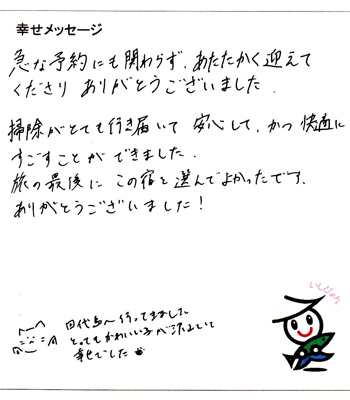 幸せメッセージ
急な予約にも関わらず、あたたかく迎えて
くださり ありがとうございました.
掃除がとても行き届いて 安心して、かつ 快適に
すごすことが できました.
旅の最後に この宿を選んでよかったです.
ありがとうございました!
田代島へ行ってきました
とってもかわいい子が沢山いて
幸せでした
いしぴょん